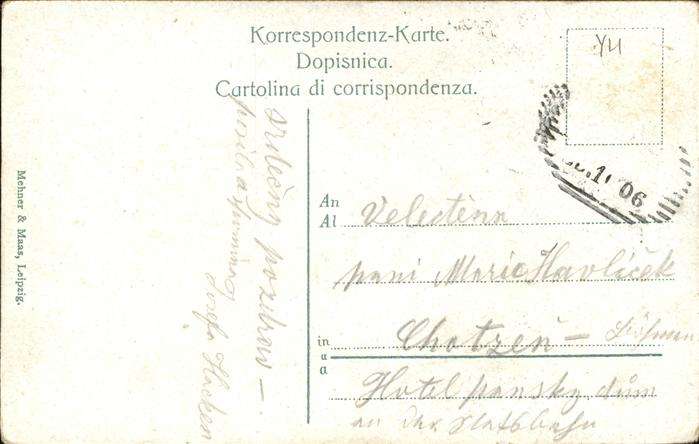 Korrespondenz-Karte.
Dopisnica.
Cartolina di corrispondenza.
YU
06
Mehner & Maas, Leipzig.
srdečný pozdrav —
posílá
Josefa
An
Al
Velectěná
paní Marie Havlíček
in
u
a
Chotzeň — Böhmen
Hotel panský dům
an der Statsbahn